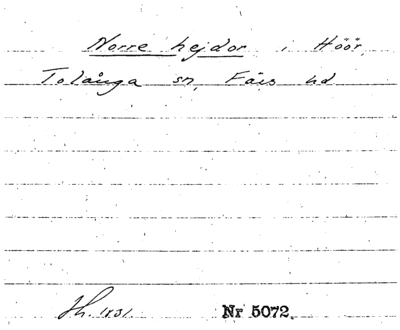 Norre hejdor i Höör,
Tolånga sn, Färs hd
Jh. 1831.
Nr 5072.